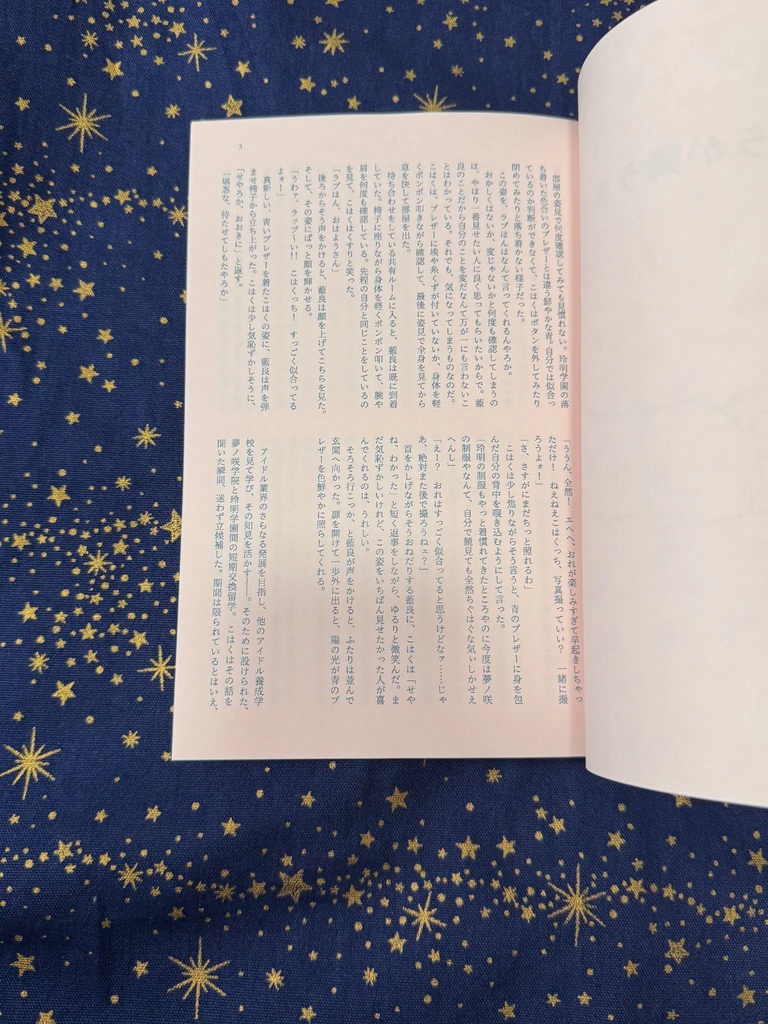 3
部屋の姿見で何度確認してみても見慣れない。玲明学園の落
ち着いた色合いのブレザーとは違う鮮やかな青。自分では似合っ
ているのか判断ができなくて、こはくはボタンを外してみたり
閉めてみたりと落ち着かない様子だった。
この姿を、ラブはんはなんて言ってくれるんやろか。
おかしくはないか、変じゃないかと何度も確認してしまうの
は、やはり一番見せたい人に良く思ってもらいたいからで。藍
良のことだから自分のことを変だなんて万が一にも言わないこ
とはわかっている。それでも、気になってしまうものなのだ。
こはくは、ブレザーに埃や糸くずが付いていないか、身体を軽
くポンポン叩きながら確認して、最後に姿見で全身を見てから
意を決して部屋を出た。
待ち合わせをしている共有ルームに入ると、藍良は既に到着
していた。椅子に座りながら身体を軽くポンポン叩いて、腕や
肩を何度も確認している。先程の自分と同じことをしているの
を見て、こはくはくすりと笑った。
「ラブはん、おはようさん」
後ろからそう声をかけると、藍良は顔を上げてこちらを見た。
そして、その姿にぱっと顔を輝かせる。
「うわァ、ラァッブい!! こはくっち! すっごく似合ってる
よォ!」
真新しい、青いブレザーを着たこはくの姿に、藍良は声を弾
ませ椅子から立ち上がった。こはくは少し気恥ずかしそうに、
「せやろか、おおきに」と返す。
「堪忍な、待たせてしもたやろか」
「ううん、全然! エヘヘ、おれが楽しみすぎて早起きしちゃっ
ただけ! ねえねえこはくっち、写真撮っていい? 一緒に撮
ろうよォ!」
「さ、さすがにまだちっと照れるわ」
こはくは少し焦りながらそう言うと、青のブレザーに身を包
んだ自分の背中を覗き込むようにして言った。
「玲明の制服もやっと着慣れてきたところやのに今度は夢ノ咲
の制服やなんて、自分で鏡見ても全然ちぐはぐな気ぃしかせえ
へんし」
「えー? おれはすっごく似合ってると思うけどなァ……じゃ
あ、絶対また後で撮ろうねェ?」
首をかしげながらそうおねだりする藍良に、こはくは「せや
ね、わかった」と短く返事をしながら、ゆるりと微笑んだ。ま
だ気恥ずかしいけれど、この姿をいちばん見せたかった人が喜
んでくれるのは、うれしい。
そろそろ行こっか、と藍良が声をかけると、ふたりは並んで
玄関へ向かった。扉を開けて一歩外に出ると、陽の光が青のブ
レザーを色鮮やかに照らしてくれる。
アイドル業界のさらなる発展を目指し、他のアイドル養成学
校を見て学び、その知見を活かす――。そのために設けられた、
夢ノ咲学院と玲明学園間の短期交換留学。こはくはその話を
聞いた瞬間、迷わず立候補した。期間は限られているとはいえ、